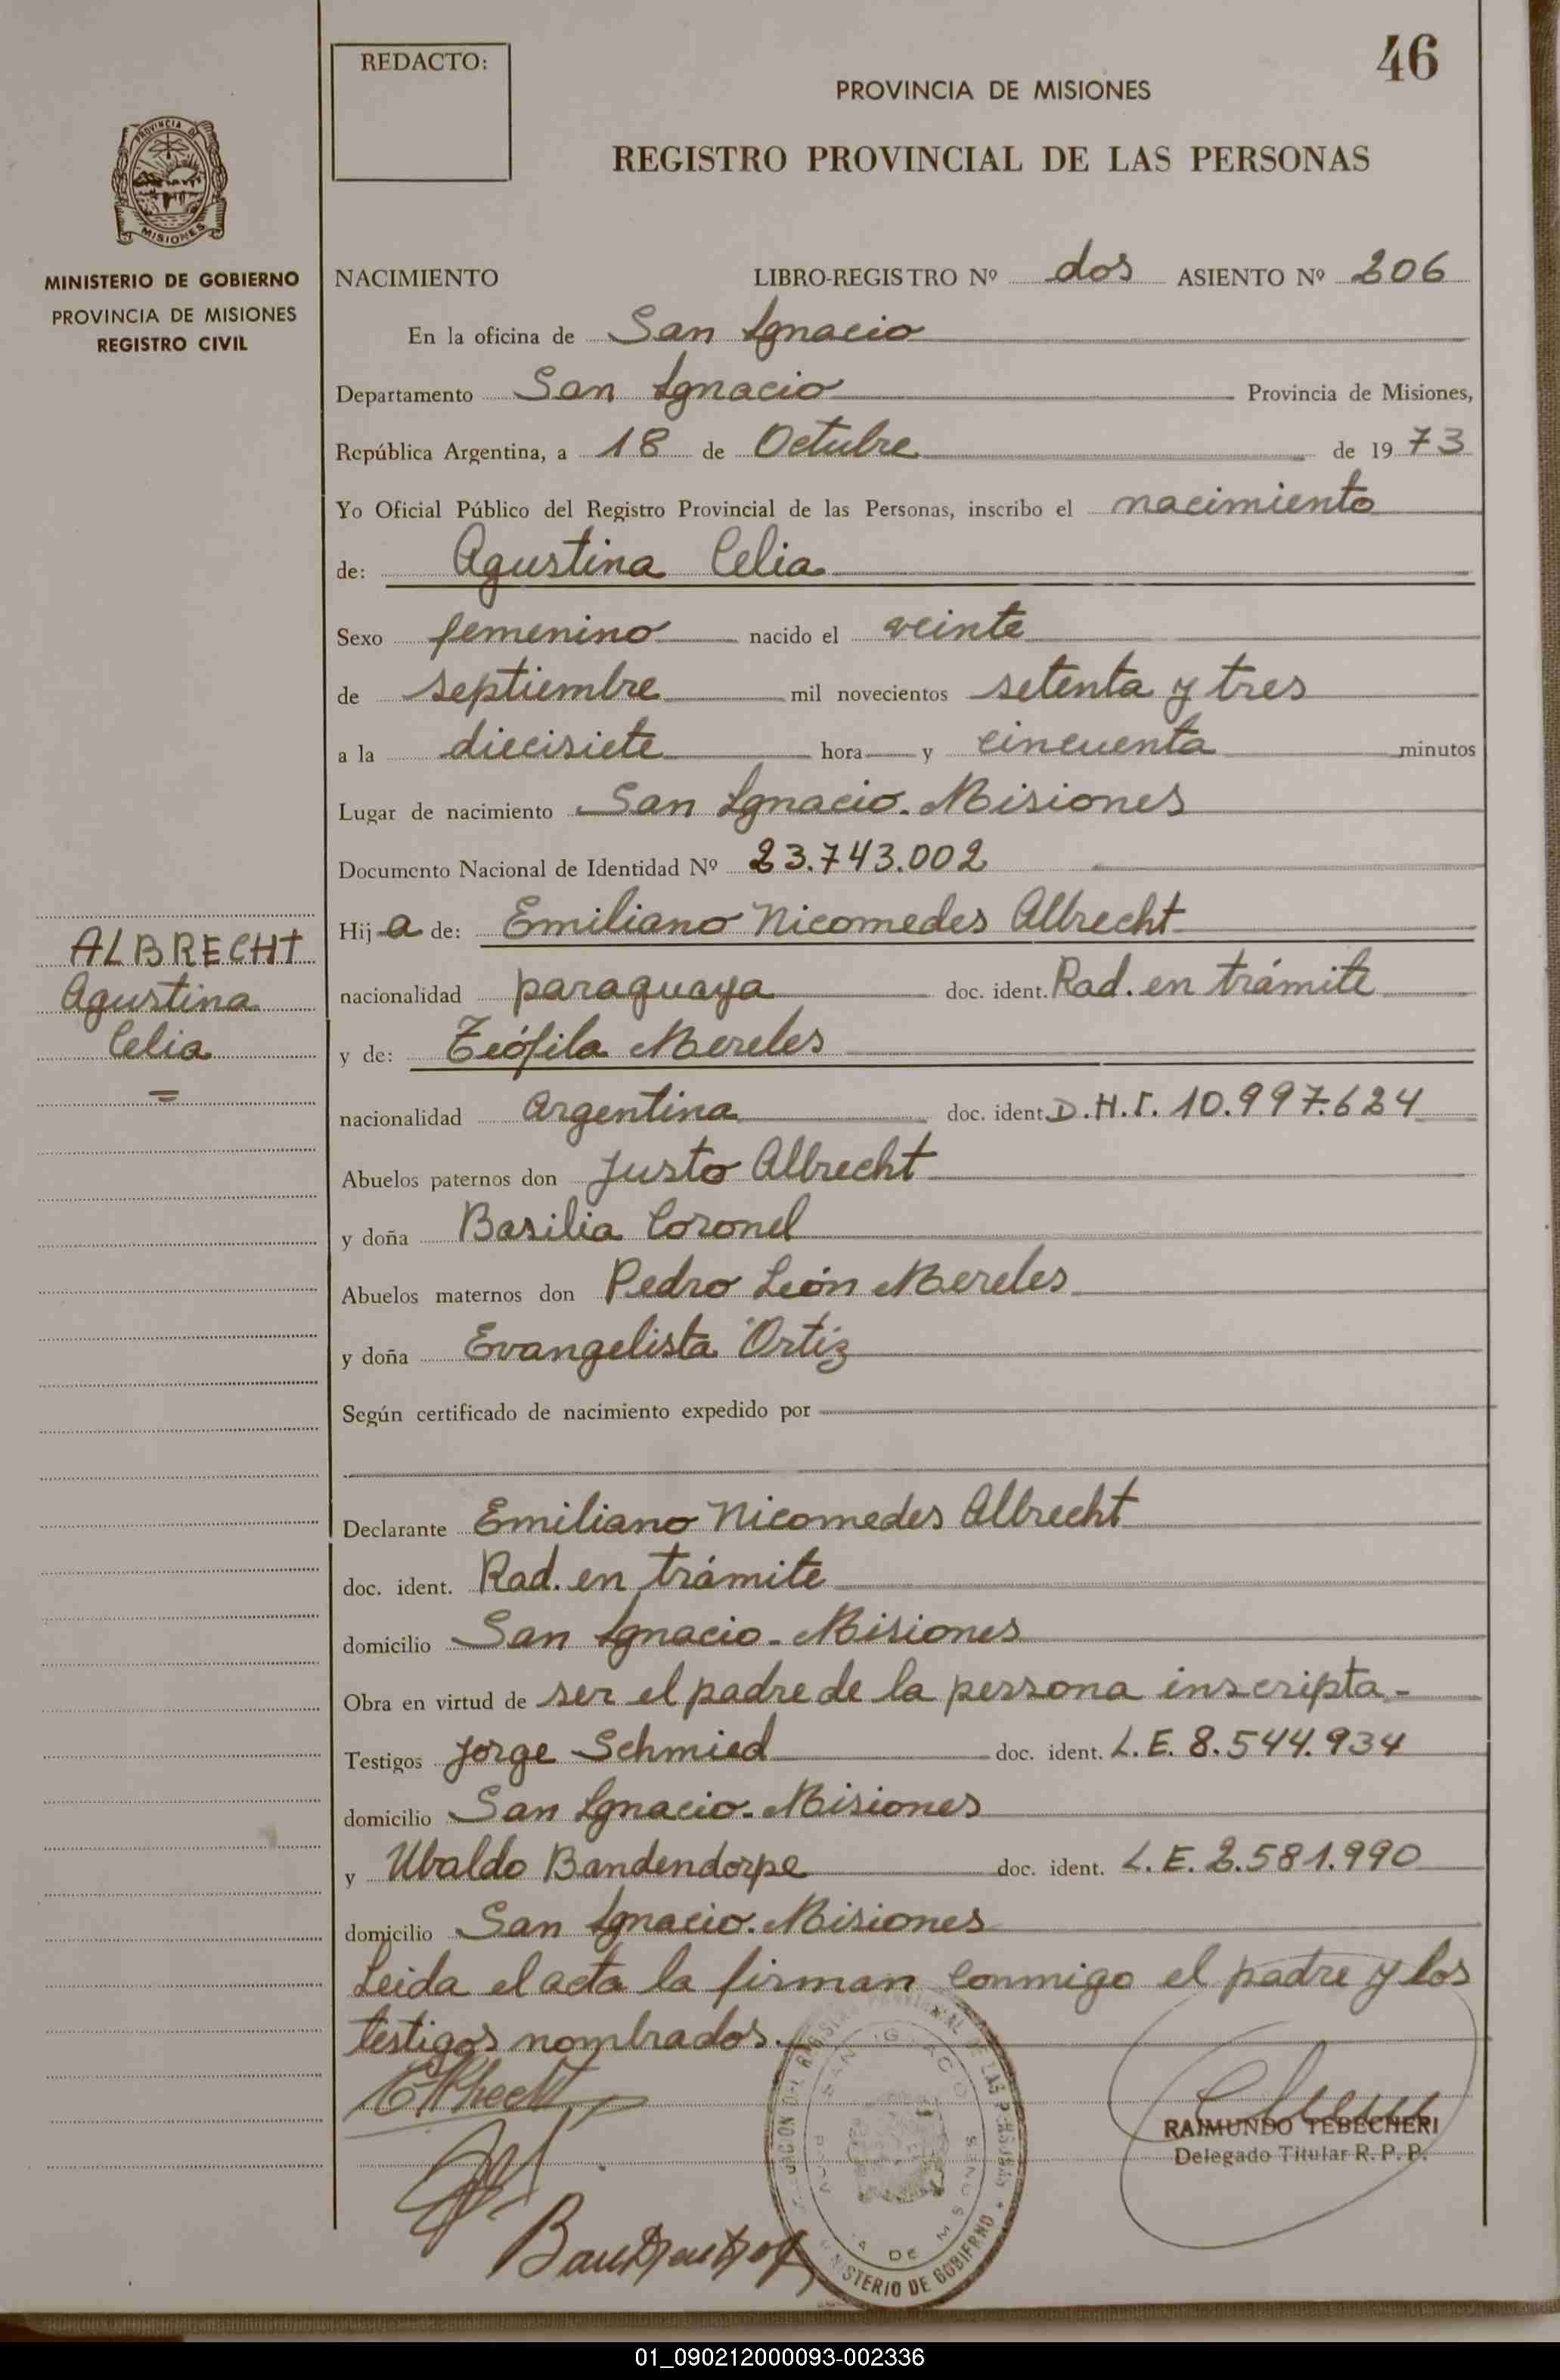 46
REDACTO:
PROVINCIA DE MISIONES
REGISTRO PROVINCIAL DE LAS PERSONAS
PROVINCIA DE
MISIONES
MINISTERIO DE GOBIERNO
PROVINCIA DE MISIONES
REGISTRO CIVIL
NACIMIENTO LIBRO-REGISTRO Nº dos ASIENTO Nº 206
En la oficina de San Ignacio
Departamento San Ignacio Provincia de Misiones,
República Argentina, a 18 de Octubre de 1973
Yo Oficial Público del Registro Provincial de las Personas, inscribo el nacimiento
de: Agustina Celia
Sexo femenino nacido el veinte
de septiembre mil novecientos setenta y tres
a la diecisiete hora y cincuenta minutos
Lugar de nacimiento San Ignacio. Misiones
Documento Nacional de Identidad Nº 23.743.002
Hija de: Emiliano Nicomedes Albrecht
ALBRECHT
Agustina
Celia
=
nacionalidad paraguaya doc. ident. Rad. en trámite
y de: Teófila Mereles
nacionalidad Argentina doc. ident. D.N.I. 10.997.624
Abuelos paternos don Justo Albrecht
y doña Basilia Coronel
Abuelos maternos don Pedro León Mereles
y doña Evangelista Ortiz
Según certificado de nacimiento expedido por
Declarante Emiliano Nicomedes Albrecht
doc. ident. Rad. en trámite
domicilio San Ignacio. Misiones
Obra en virtud de ser el padre de la persona inscripta.-
Testigos Jorge Schmied doc. ident. L.E. 8.544.934
domicilio San Ignacio. Misiones
y Ubaldo Bandendorpe doc. ident. L.E. 2.581.990
domicilio San Ignacio. Misiones
Leida el acta la firman conmigo el padre y los
testigos nombrados.
RAIMUNDO TEBECHERI
Delegado Titular R. P. P.
DE LAS PERSONAS
MINISTERIO DE GOBIERNO
01_090212000093-002336